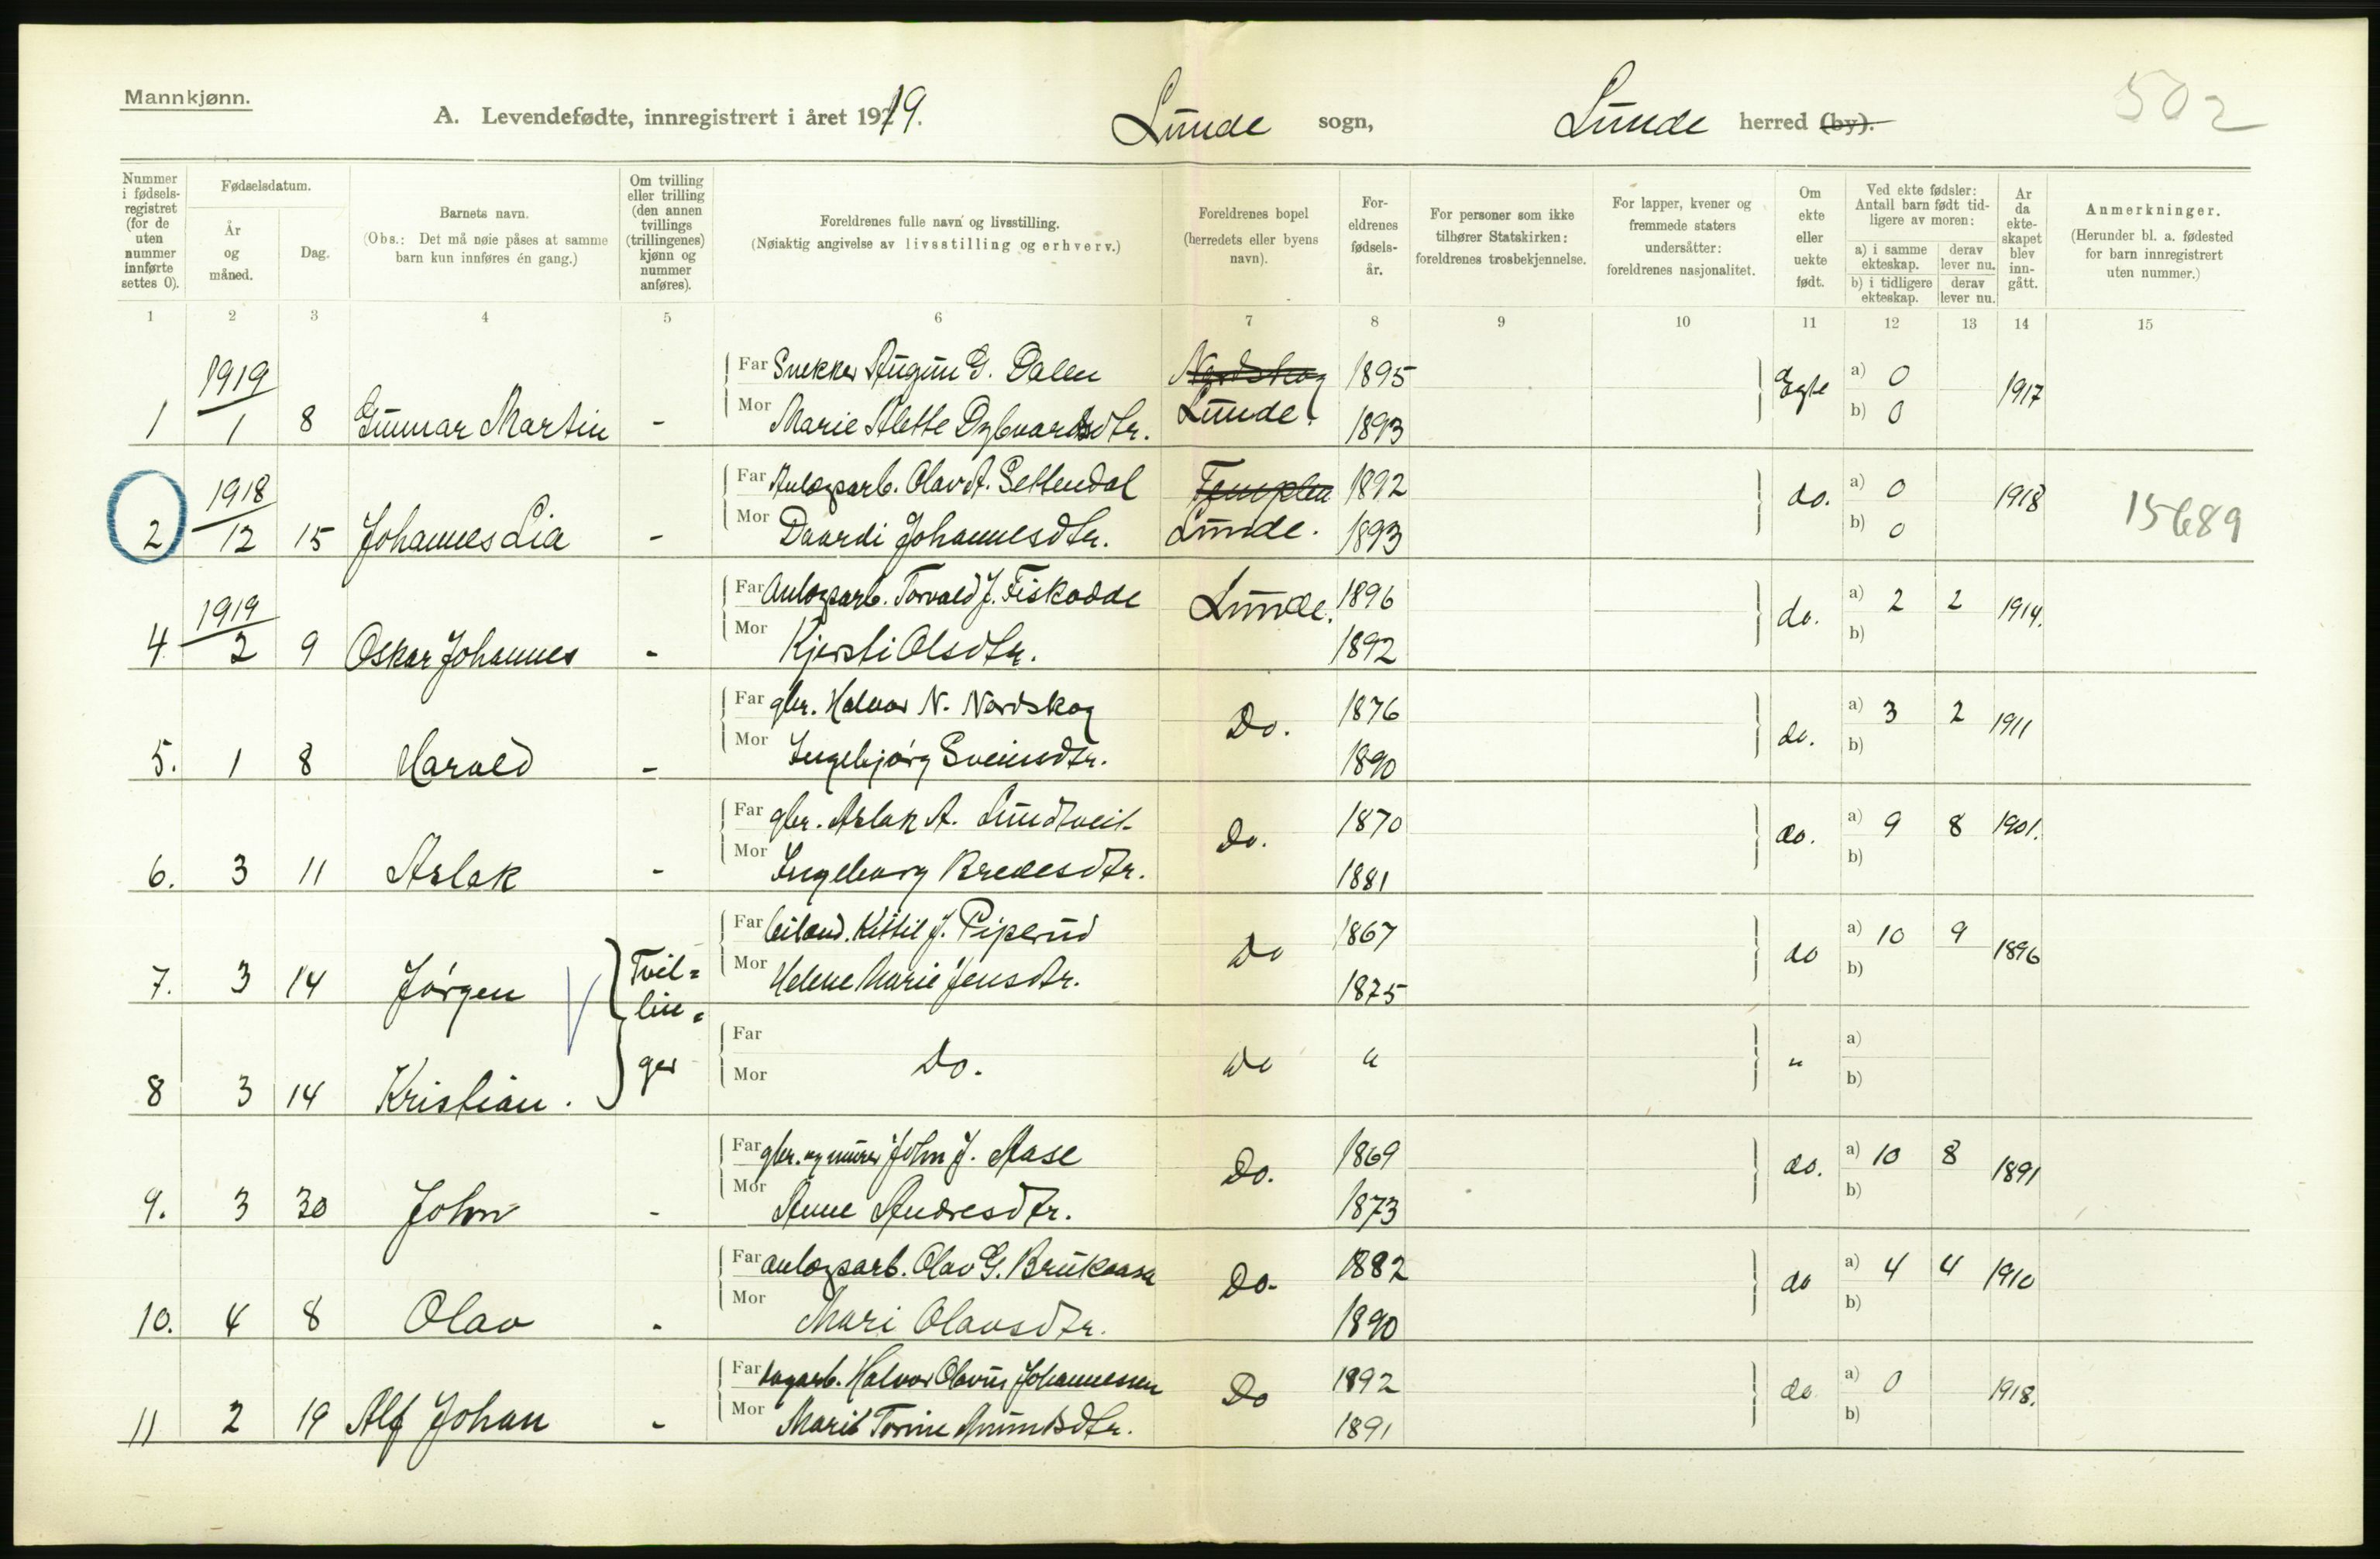 Mannkjønn.
A. Levendefødte, innregistrert i året 1919. Lunde sogn, Lunde herred (by).
502
Nummer i fødselsregistret (for de uten nummer innførte settes 0).
Fødselsdatum.
År og måned.
Dag.
Barnets navn.
(Obs.: Det må nøie påses at samme barn kun innføres én gang.)
Om tvilling eller trilling (den annen tvillings (trillingenes) kjønn og nummer anføres).
Foreldrenes fulle navn og livsstilling.
(Nøiaktig angivelse av livsstilling og erhverv.)
Foreldrenes bopel (herredets eller byens navn).
Foreldrenes fødselsår.
For personer som ikke tilhører Statskirken: foreldrenes trosbekjennelse.
For lapper, kvener og fremmede staters undersåtter: foreldrenes nasjonalitet.
Om ekte eller uekte født.
Ved ekte fødsler: Antall barn født tidligere av moren:
a) i samme ekteskap. derav lever nu.
b) i tidligere ekteskap. derav lever nu.
Ar da ekteskapet blev inngått.
Anmerkninger.
(Herunder bl. a. fødested for barn innregistrert uten nummer.)
1 2 3 4 5 6 7 8 9 10 11 12 13 14 15
1919
Far Snekker Augun G. Dalen Nordskog 1895 Egte a) 0 1917
1 1 8 Gunnar Martin - Mor Marie Alette Dybvardsdtr. Lunde. 1893 b) 0
1918
Far Anlægsarb. Olav A. Settendal 1892 do. a) 0 1918
2 12 15 Johannes Lia - Mor Johannesdtr. Lunde. 1893 b) 0 15689
1919
Far Anlægsarb. Torvald J. Fiskodde Lunde. 1896 do. a) 2 2 1914.
4 2 9 Oskar Johannes - Mor Kjersti Olsdtr. 1892 b)
Far gbr. Halvor N. Nordskog Do. 1876 do. a) 3 2 1911
5. 1 8 Harald - Mor Ingebjørg Sveinsdtr. 1890 b)
Far gbr. Aslak A. Lundtveit Do. 1870 do. a) 9 8 1901.
6. 3 11 Aslak - Mor Ingeborg Bredesdtr. 1881 b)
Far leilænd. Kittil J. Piperud Do 1867 do a) 10 9 1896
7. 3 14 Jørgen Tvil= lin= ger Mor Helene Marie Jensdtr. 1875 b)
Far Do. Do " " a)
8 3 14 Kristian. Mor b)
Far gbr. og murer John J. Aase Do. 1869 do. a) 10 8 1891
9. 3 30 John - Mor Anne Andresdtr. 1873 b)
Far anlægsarb. Olav G. Brukaasa Do. 1882 do a) 4 4 1910
10. 4 8 Olav - Mor Mari Olavsdtr. 1890 b)
Far Halvor Olavus Johannessen Do 1892 do a) 0 1918.
11 2 19 Alf Johan - Mor Marit Torine 1891 b)